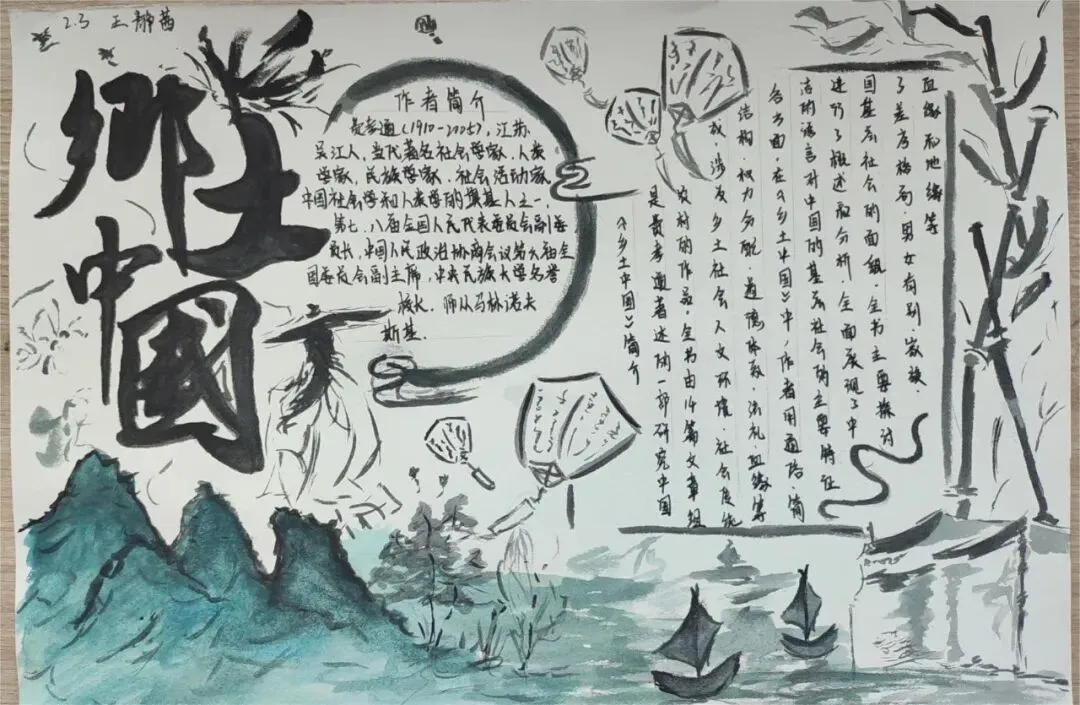 2.3 王静茜
鄉土
中國
作者简介
费孝通(1910-2005),江苏
吴江人,当代著名社会学家、人类
学家,民族学家、社会活动家,
中国社会学和人类学的奠基人之一,
第七、八届全国人民代表委员会副委
员长,中国人民政治协商会议第六届全
国委员会副主席,中央民族大学名誉
校长,师从马林诺夫
斯基.
《乡土中国》简介
是费孝通著述的一部研究中国
农村的作品,全书由14篇文章组
成,涉及乡土社会人文环境、社会传统
结构、权力分配、道德体系、法礼、血缘等
各方面,在《乡土中国》中,作者用通俗、简
洁的语言对中国的基层社会的主要特征
进行了概述和分析,全面展现了中
国基层社会的面貌,全书主要探讨
了差序格局、男女有别、家族、
血缘和地缘等